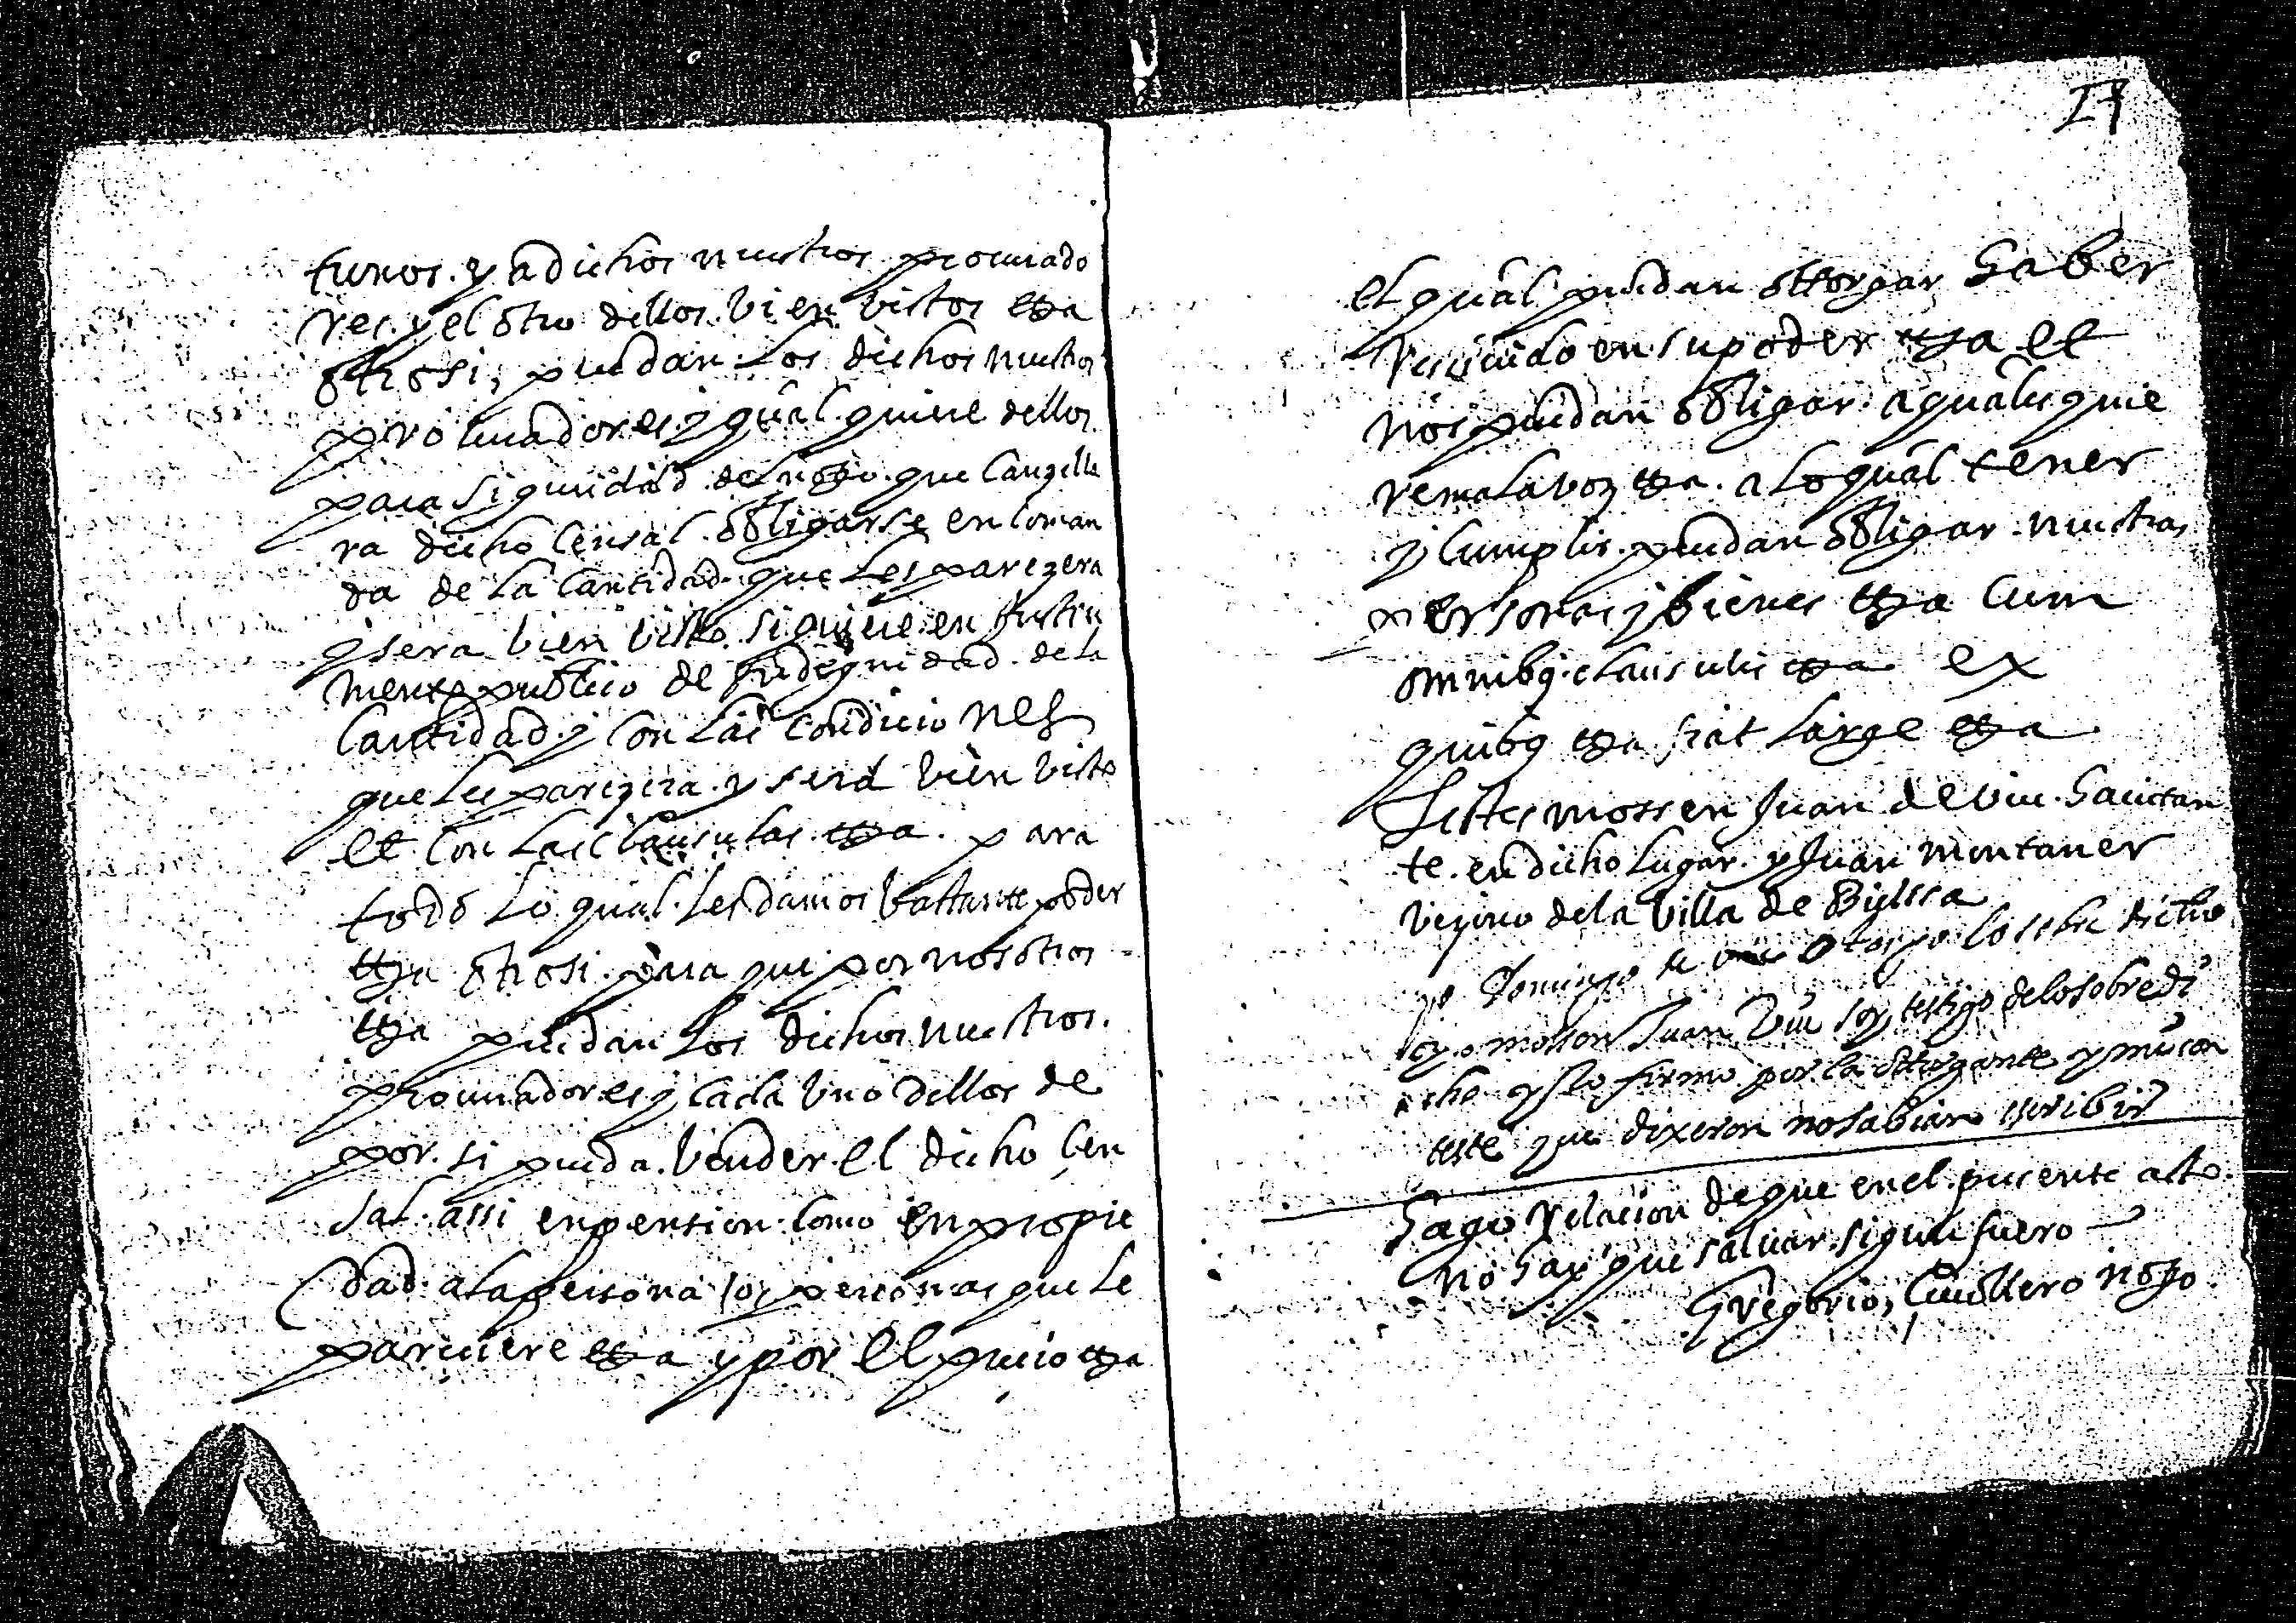 tunos. y a dichos nuestros procurado
res. y el otro dellos. bien vistos etta
otrosi, puedan los dichos nuestros
procuradores y qual quiere dellos.
para siguridad del noto. que Canzella
ra dicho Censal. obligarse en Coman
da de la Cantidad. que les parezera
y sera bien visto. siquiere en Instru
mento publico de Indegnidad. de la
Cantidad. y Con las condiciones
que les parezera. y sera bien visto
et Con las clausulas. etta. para
todo lo qual. les damos bastante poder
etta otrosi. para que por nosotros
etta puedan los dichos nuestros.
procuradores y cada uno dellos de
por. si pueda. vender. el dicho Cen
sal. assi en pension. Como en propie
dad. a la persona /o, personas que le
pareciere etta y por el precio etta
17
el qual puedan ottorgar haber
recivido en su poder etta et
nos puedan obligar. a quales quie
re mala voz etta. a lo qual tener
y Cumplir. puedan obligar. nuestras
personas y bienes etta Cum
omnibq. clausulis etta ex
quibq etta fiat large etta
Testes mossen Juan de Viu. havitan
te. en dicho lugar. y Juan montaner
vezino de la villa de Bielssa
yo Domingo de viu otorgo lo sobre dicho
yo mossen Juan Viu soy testigo de lo sobre di
cho y lo firmo por la ottorgante y mi con
teste que dixeron no sabian escribir
Hago Relacion de que en el. presente acto.
no hay que salvar. sigun fuero
Gregorio, Cavallero noto.